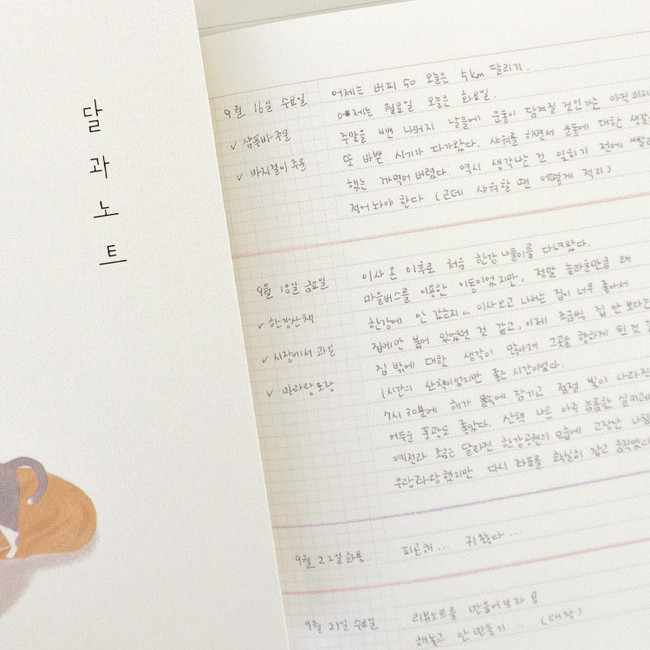 달
과
노
트
9월 16일 수요일
✓ 삼봉바 주문
✓ 바지걸이 주문
어제는 버피 50 오늘은 5km 달리기.
어제는 월요일 오늘은 화요일.
주말을 뺀 나머지 날들에 운동이 당겨질 것인가는 아직
또 바쁜 시기가 다가왔다. 샤워를 하면서 운동에 대한
했는 까먹어버렸다. 역시 생각나는 건 잊히기 전에
적어놔야 한다 (근데 샤워할 땐 어떻게 적지)
9월 18일 금요일
✓ 한강산책
✓ 시장에서 과일
✓ 마라랑도랑
이사 온 이후로 처음 한강 나들이를 다녀왔다.
마을버스를 이용한 이동이었지만, 정말 놀라울만큼 왜
한강에 안 갔는지... 이사오고 나서는 집이 너무 좋아서
집에만 붙어 있었던 것 같고, 이제 조금씩 집 안보다는
집 밖에 대한 생각이 많아져 그곳을 향하게 된 것
1시간의 산책이었지만 좋은 시간이었다.
7시 30분에 해가 물속에 잠기고 점점 빛이 사라진
어두운 풍광도 좋았다. 산책 나온 아주 능름한
예전과 조금은 달라진 한강공원의 모습에 고장난 나침
우왕좌왕했지만 다시 좌표를 확실히 잡고 움직였다
9월 22일 화요일
피곤해... 귀찮다...
9월 23일 수요일
리뷰노트를 만들어보자 용
해놓고 안 만들기... (대장)